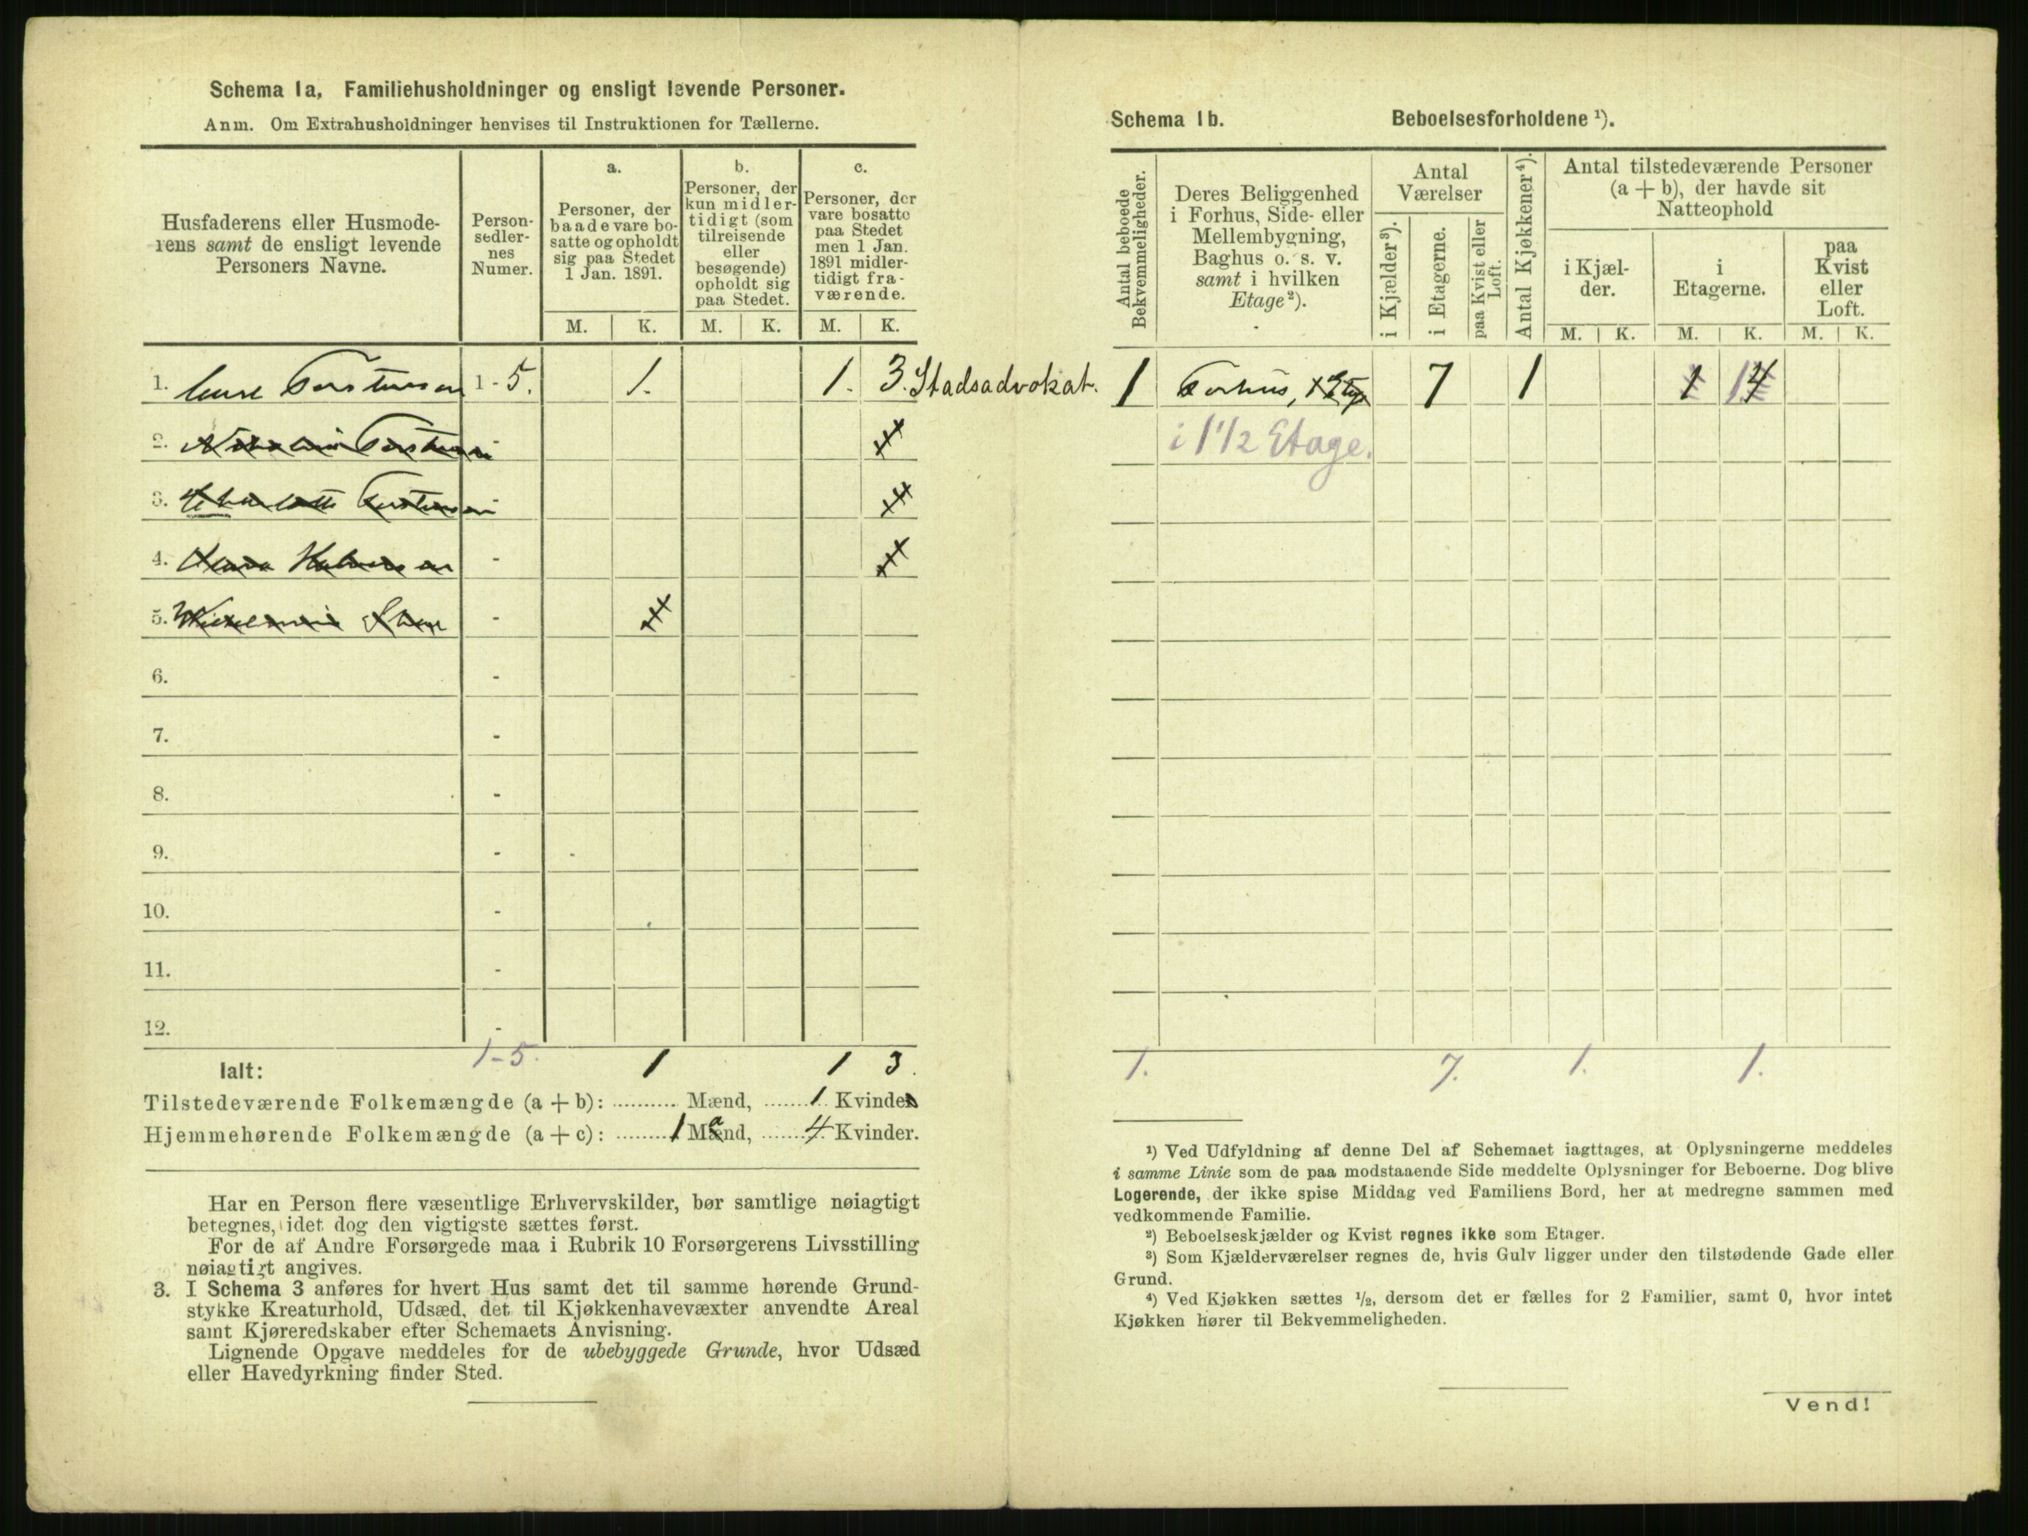 Schema 1a. Familiehusholdninger og ensligt levende Personer.
Anm. Om Extrahusholdninger henvises til Instruktionen for Tællerne.
Husfaderens eller Husmode-
rens samt de ensligt levende
Personers Navne.
Person-
sedler-
nes
Numer.
a.
Personer, der
baade vare bo-
satte og opholdt
sig paa Stedet
1 Jan. 1891.
b.
Personer, der
kun midler-
tidigt (som
tilreisende
eller
besøgende)
opholdt sig
paa Stedet.
c.
Personer, der
vare bosatte
paa Stedet
men 1 Jan.
1891 midler-
tidigt fra-
værende.
M. K. M. K. M. K.
1. Torstensen 1 - 5. 1. 1. 3. Stadsadvokat.
2. -
3. -
4. -
5. -
6. -
7. -
8. -
9. -
10. -
11. -
12. -
1-5.
Ialt: 1 1 3.
Tilstedeværende Folkemængde (a + b): Mænd, 1 Kvinde
Hjemmehørende Folkemængde (a + c): 1 Mand, 4 Kvinder.
Har en Person flere væsentlige Erhvervskilder, bør samtlige nøiagtigt
betegnes, idet dog den vigtigste sættes først.
For de af Andre Forsørgede maa i Rubrik 10 Forsørgerens Livsstilling
nøiagtigt angives.
3. I Schema 3 anføres for hvert Hus samt det til samme hørende Grund-
stykke Kreaturhold, Udsæd, det til Kjøkkenhavevæxter anvendte Areal
samt Kjøreredskaber efter Schemaets Anvisning.
Lignende Opgave meddeles for de ubebyggede Grunde, hvor Udsæd
eller Havedyrkning finder Sted.
Schema 1b. Beboelsesforholdene ¹).
Antal beboede
Bekvemmeligheder.
Deres Beliggenhed
i Forhus, Side- eller
Mellembygning,
Baghus o. s. v.
samt i hvilken
Etage ²).
Antal
Værelser
i Kjælder ³).
i Etagerne.
paa Kvist eller
Loft.
Antal Kjøkkener ⁴).
Antal tilstedeværende Personer
(a + b), der havde sit
Natteophold
i Kjæl-
der.
i
Etagerne.
paa
Kvist
eller
Loft.
M. K. M. K. M. K.
1 Forhus, 7 1 1 1 4
i 1 1/2 Etage.
1. 7. 1. 1.
¹) Ved Udfyldning af denne Del af Schemaet iagttages, at Oplysningerne meddeles
i samme Linie som de paa modstaaende Side meddelte Oplysninger for Beboerne. Dog blive
Logerende, der ikke spise Middag ved Familiens Bord, her at medregne sammen med
vedkommende Familie.
²) Beboelseskjælder og Kvist regnes ikke som Etager.
³) Som Kjælderværelser regnes de, hvis Gulv ligger under den tilstødende Gade eller
Grund.
⁴) Ved Kjøkken sættes ½, dersom det er fælles for 2 Familier, samt 0, hvor intet
Kjøkken hører til Bekvemmeligheden.
Vend!